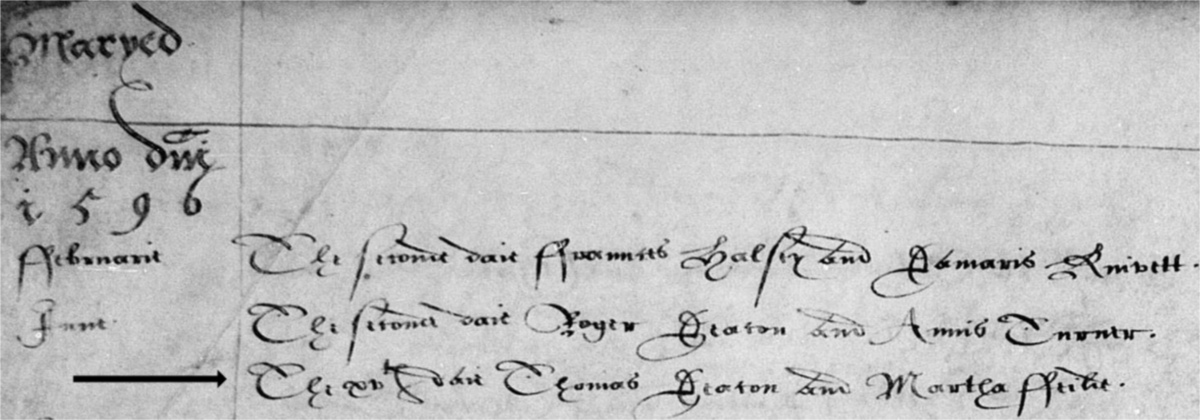 Maryed
Anno dni
1596
ffebruarie The second daie ffrannces Halsey and Damaris Knivett.
June The second daie Roger Deacon and Annis Turner.
The xvth daie Thomas Deacon and Martha